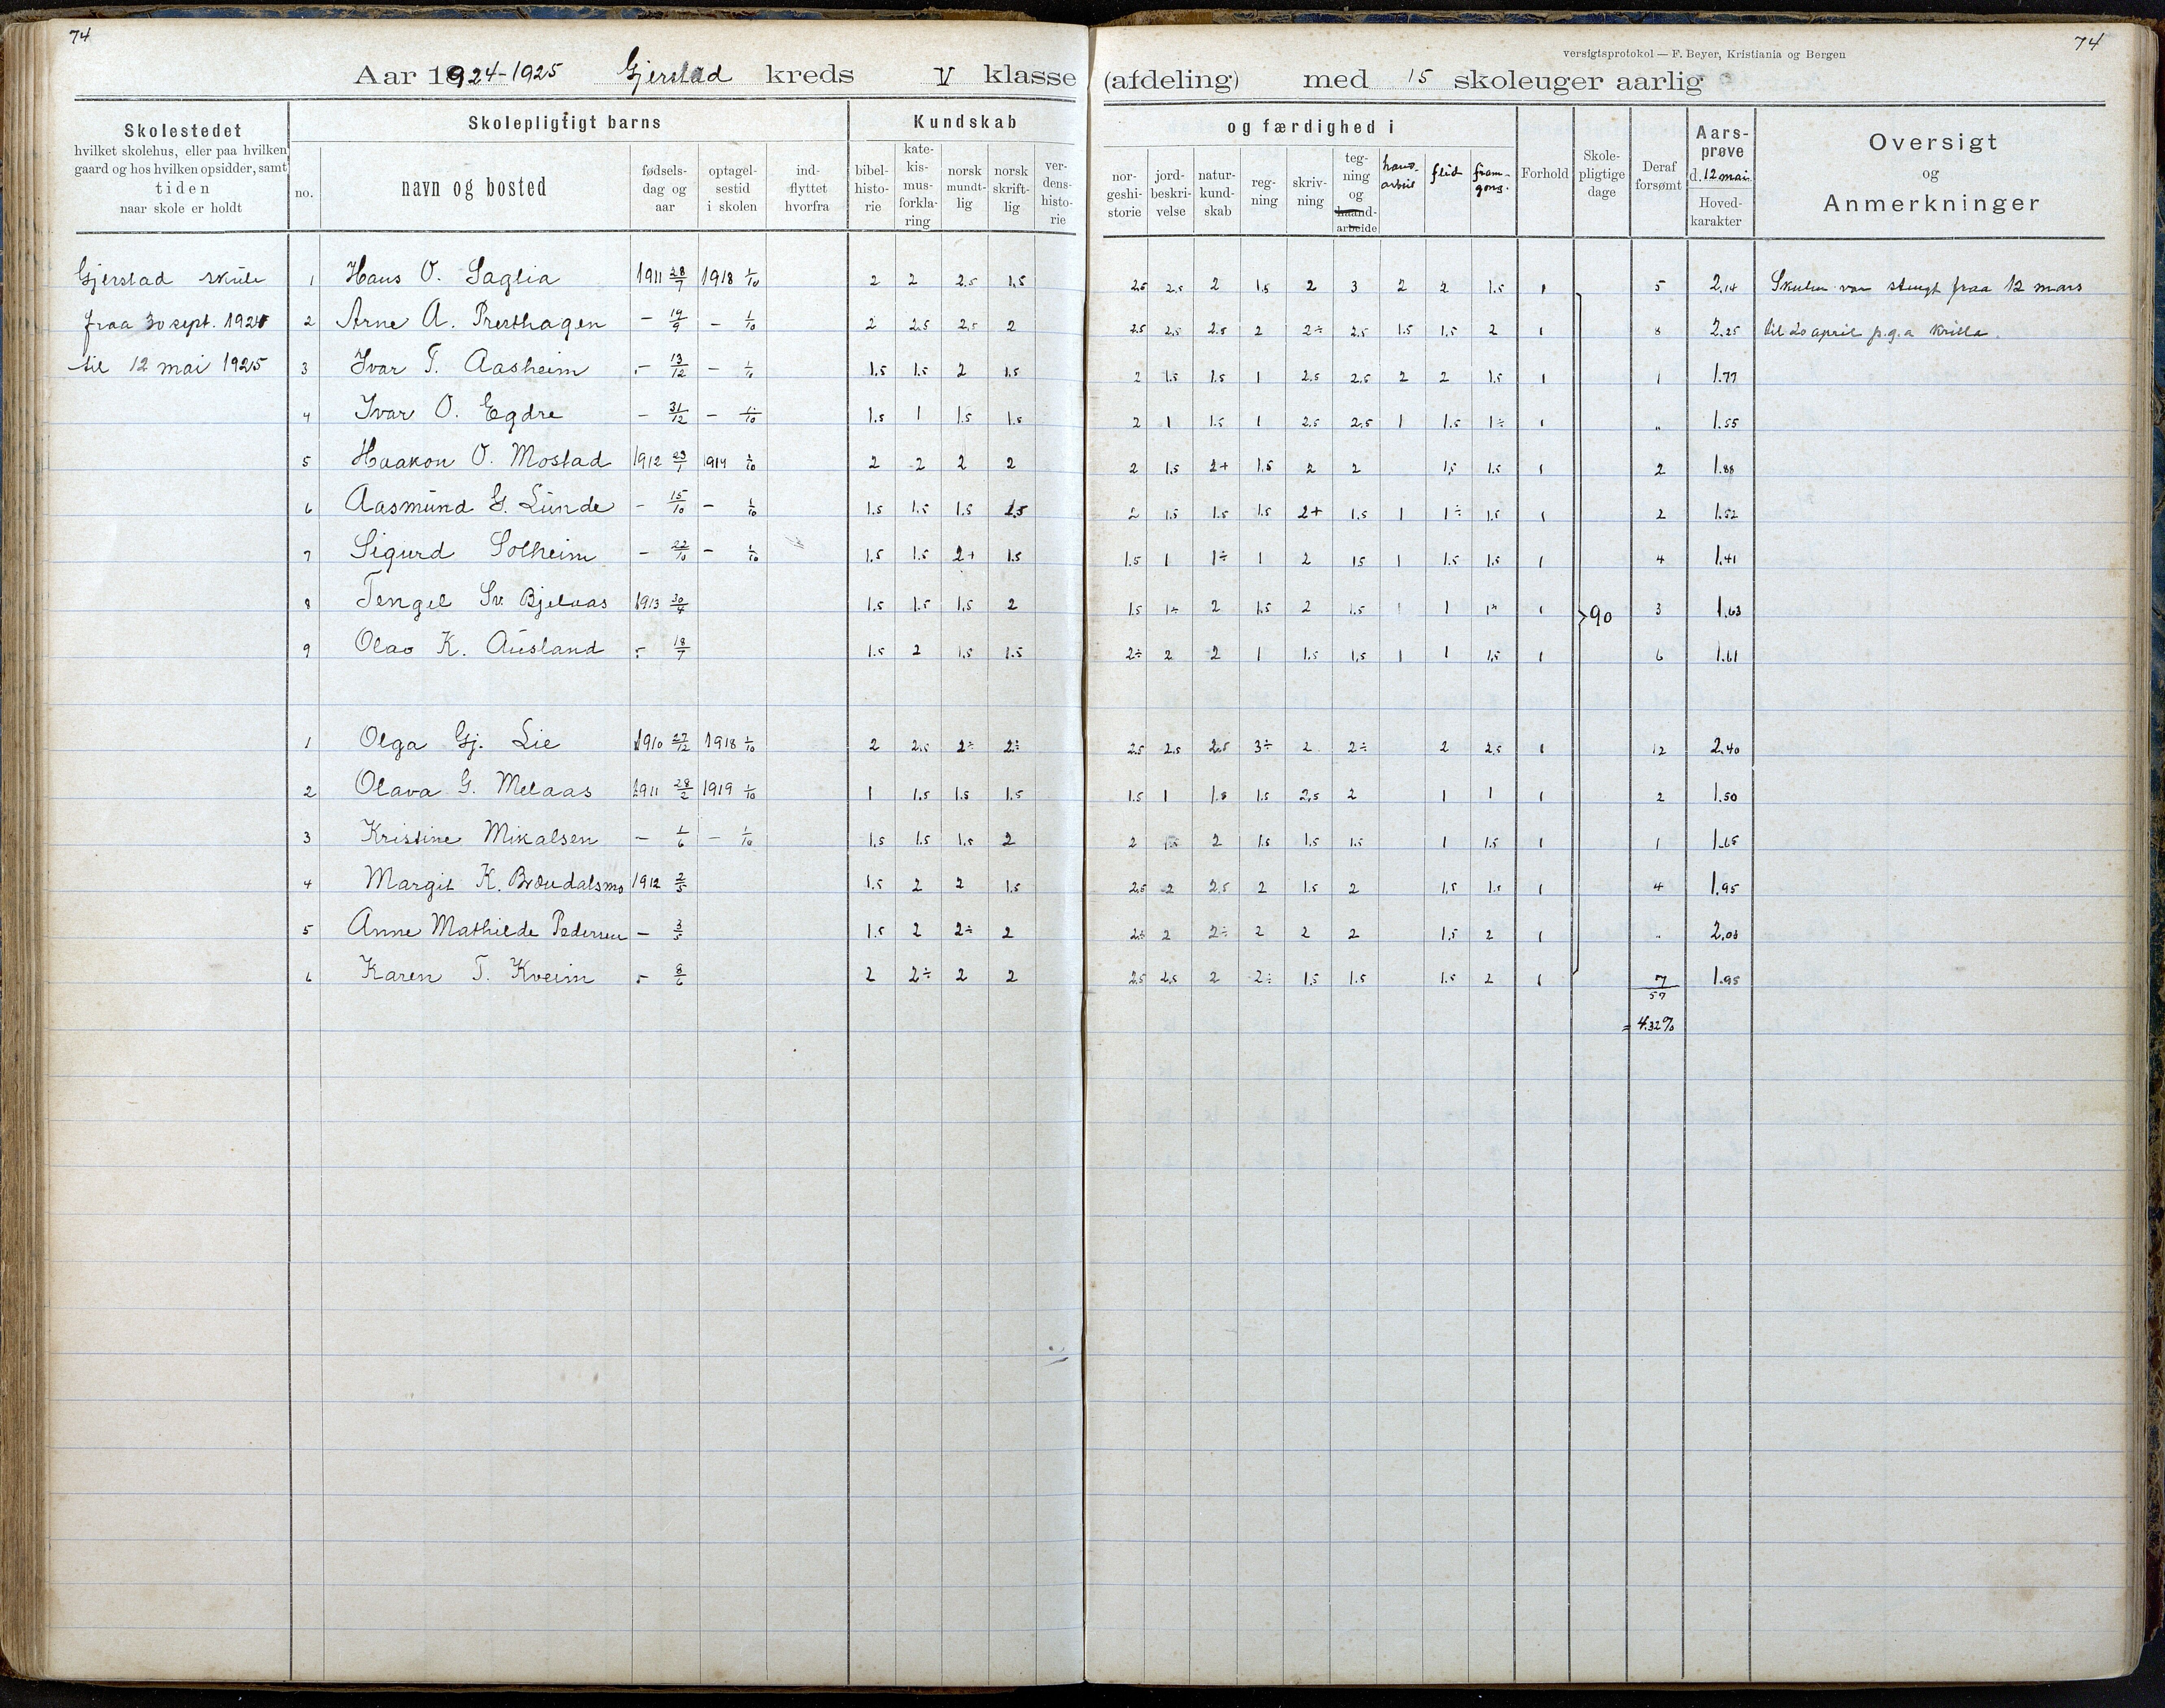 74
74
versigtsprotokol — F. Beyer, Kristiania og Bergen
Aar 1924-1925 Gjerstad kreds V klasse (afdeling) med 15 skoleuger aarlig
Skolestedet
hvilket skolehus, eller paa hvilken
gaard og hos hvilken opsidder, samt
tiden
naar skole er holdt
Skolepligtigt barns
no.
navn og bosted
fødsels-
dag og
aar
optagel-
sestid
i skolen
ind-
flyttet
hvorfra
Kundskab
bibel-
histo-
rie
kate-
kis-
mus-
forkla-
ring
norsk
mundt-
lig
norsk
skrift-
lig
ver-
dens-
histo-
rie
og færdighed i
nor-
geshi-
storie
jord-
beskri-
velse
natur-
kund-
skab
reg-
ning
skriv-
ning
teg-
ning
og
haand-
arbeide
hand-
arbeid
flid
fram-
gong.
Forhold
Skole-
pligtige
dage
Deraf
forsømt
Aars-
prøve
d. 12 mai.
Hoved-
karakter
Oversigt
og
Anmerkninger
Gjerstad skule 1 Hans O. Saglia 1911 28/7 1918 1/10 2 2 2.5 1.5 2.5 2.5 2 1.5 2 3 2 2 1.5 1 5 2.14 Skulen var stengt fraa 12 mars
fraa 30 sept. 1924 2 Arne A. Presthagen - 19/9 - 1/10 2 2.5 2.5 2 2.5 2.5 2.5 2 2÷ 2.5 1.5 1.5 2 1 8 2.25 til 20 april p.g.a
til 12 mai 1925 3 Ivar T. Aasheim - 13/12 - 1/10 1.5 1.5 2 1.5 2 1.5 1.5 1 2.5 2.5 2 2 1.5 1 1 1.77
4 Ivar O. Egdre - 31/12 - 1/10 1.5 1 1.5 1.5 2 1 1.5 1 2.5 2.5 1 1.5 1÷ 1 " 1.55
5 Haakon O. Mostad 1912 23/1 1919 1/10 2 2 2 2 2 1.5 2+ 1.5 2 2 1.5 1.5 1 2 1.88
6 Aasmund G. Lunde - 15/10 - 1/10 1.5 1.5 1.5 1.5 2 1.5 1.5 1.5 2+ 1.5 1 1÷ 1.5 1 2 1.52
7 Sigurd Solheim - 22/10 - 1/10 1.5 1.5 2+ 1.5 1.5 1 1÷ 1 2 1.5 1 1.5 1.5 1 4 1.41
8 Tengel Sv. Bjelaas 1913 30/4 1.5 1.5 1.5 2 1.5 1÷ 2 1.5 2 1.5 1 1 1÷ 1 90 3 1.63
9 Olav K. Ausland - 18/7 1.5 2 1.5 1.5 2÷ 2 2 1 1.5 1.5 1 1 1.5 1 6 1.61
1 Olga Gj. Lie 1910 27/12 1918 1/10 2 2.5 2÷ 2÷ 2.5 2.5 2.5 3÷ 2 2÷ 2 2.5 1 12 2.40
2 Olava G. Melaas 1911 28/2 1919 1/10 1 1.5 1.5 1.5 1.5 1 1.5 1.5 2.5 2 1 1 1 2 1.50
3 Kristine Mikalsen - 1/6 - 1/10 1.5 1.5 1.5 2 2 1.5 2 1.5 1.5 1.5 1 1.5 1 1 1.65
4 Margit K. Brøudalsmo 1912 2/5 1.5 2 2 1.5 2.5 2 2.5 2 1.5 2 1.5 1.5 1 4 1.95
5 Anne Mathilde Pedersen - 3/5 1.5 2 2÷ 2 2.5 2 2÷ 2 2 2 1.5 2 1 " 2.03
6 Karen T. Kveim - 8/6 2 2÷ 2 2 2.5 2.5 2 2÷ 1.5 1.5 1.5 2 1 7 1.95
57
= 4.32%